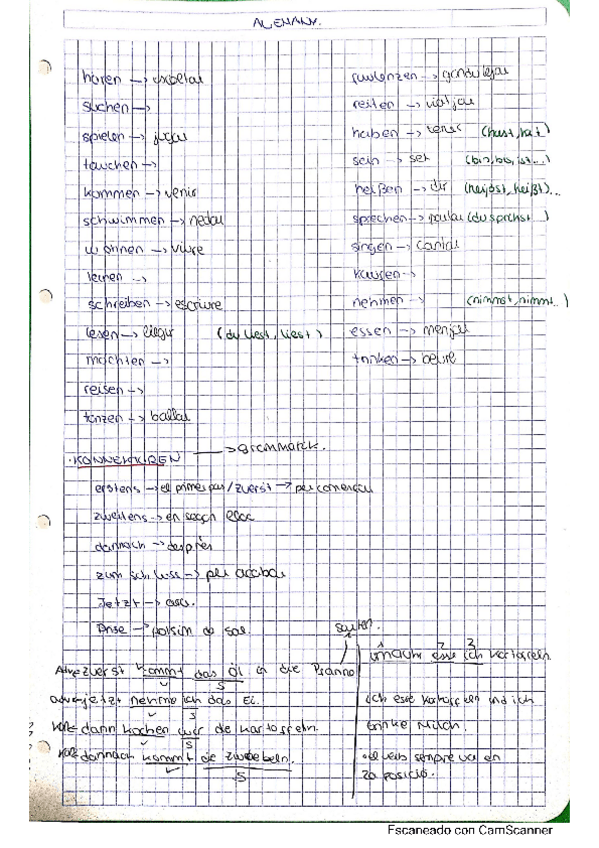 ALEMANY.
hören → escoltar
suchen →
spielen → jugar
tauchen →
kommen → venir
schwimmen → nedar
wohnen → viure
lernen →
schreiben → escriure
lesen → llegir (du liest, liest)
möchten →
reisen →
tanzen → ballar
faulenzen → gandulejar
reiten →
haben → tenir (hast, hat)
sein → ser (bin, bis, ist...)
heißen → dir (heißst, heißt)...
sprechen → parlar (du sprichst)
singen → cantar
kaufen →
nehmen → (nimmst, nimmt..)
essen → menjar
trinken → beure
KONNEKTOREN → grammatik.
erstens → el primer pas / zuerst → per començar
zweitens → en segon lloc
dannach → després
zum schluss → per acabar
Jetzt → ara.
Prise → polsim de sal.
zuerst kommt das Öl in die Pfanne
S
jetzt nehme ich das Ei.
S
dann kochen wir die kartoffeln.
S
dannach kommt die zwiebeln.
S
1 2 3
esse ich kartoffeln
ich esse kartoffeln und ich
trinke Milch.
el verb sempre va en
2a posició.
Escaneado con CamScanner